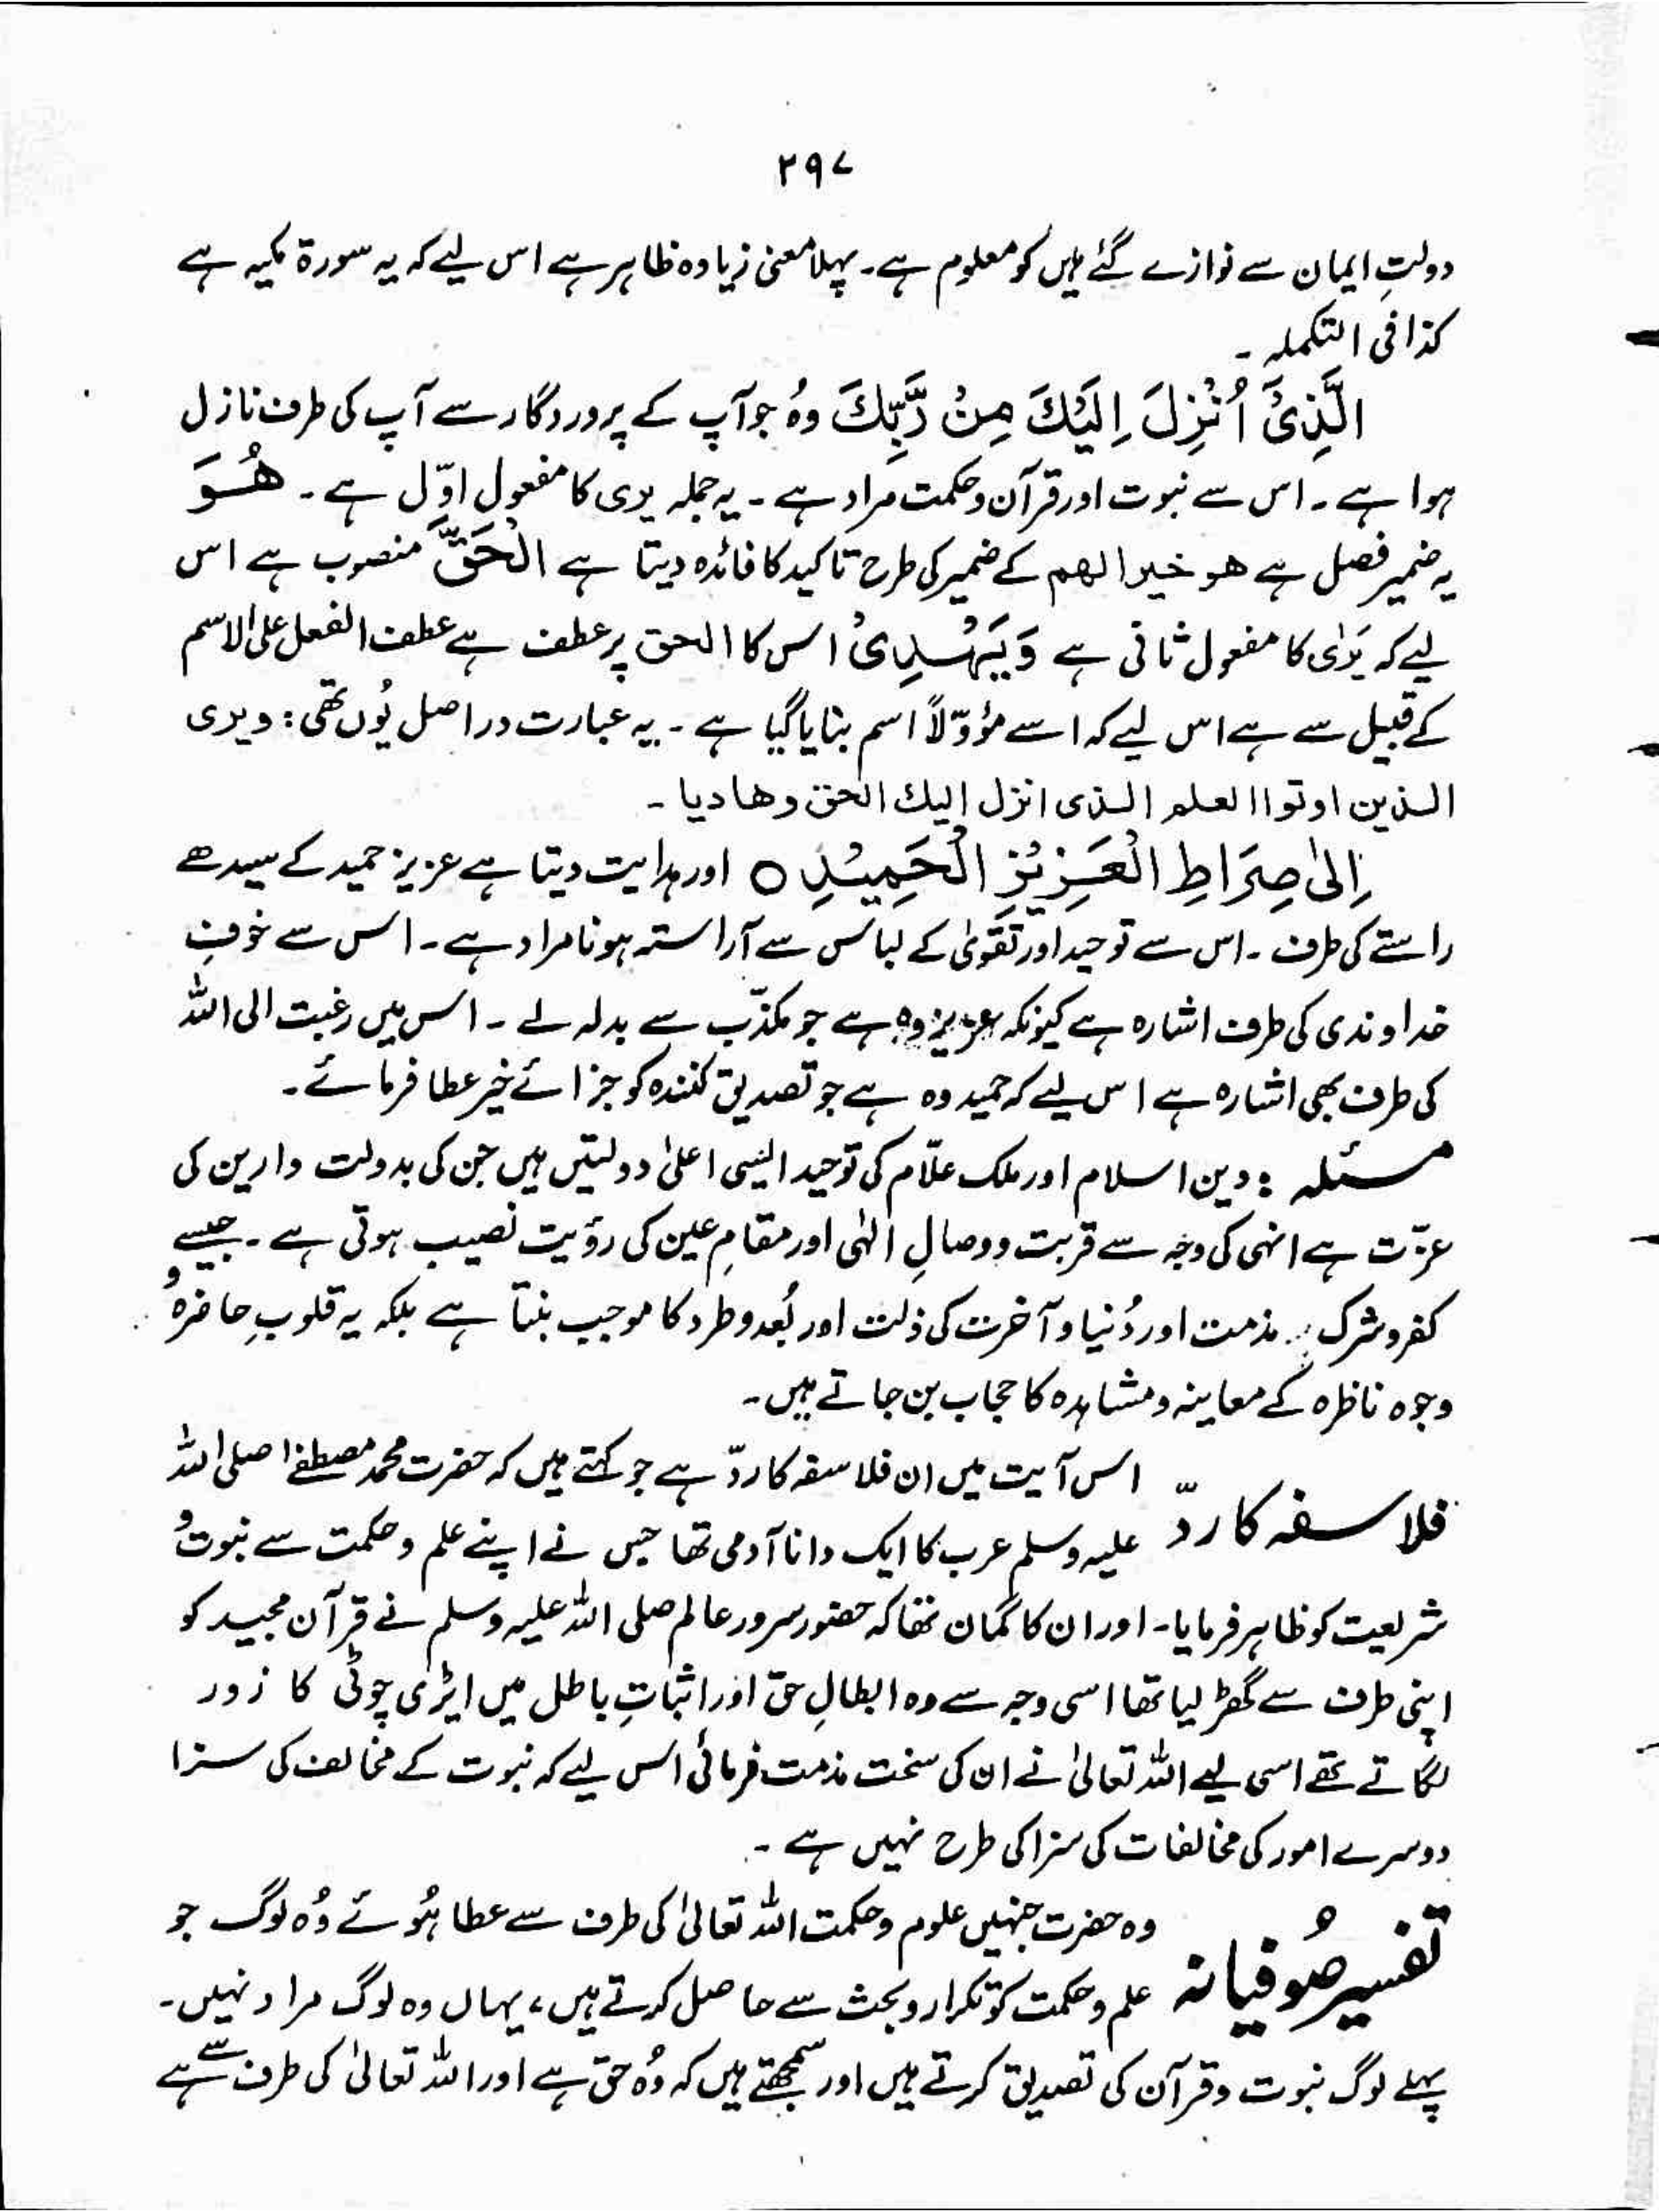 ۲۹۷
دولتِ ایمان سے نوازے گئے ہیں کو معلوم ہے۔ پہلا معنیٰ زیادہ ظاہر ہے اس لیے کہ یہ سورۃ مکیہ ہے
کذا فی التکملہ ۔
الَّذِیْۤ اُنْزِلَ اِلَیْكَ مِنْ رَّبِّكَ وُہ جو آپ کے پروردگار سے آپ کی طرف نازل
ہوا ہے۔ اس سے نبوت اور قرآن و حکمت مراد ہے۔ یہ جملہ یری کا مفعول اوّل ہے۔ هُوَ
یہ ضمیر فصل ہے هو خیرا لهم کے ضمیر کی طرح تاکید کا فائدہ دیتا ہے الْحَقَّ منصوب ہے اس
لیے کہ یَرٰی کا مفعول ثانی ہے وَیَهْدِیْۤ اس کا الحق پر عطف ہے عطف الفعل علی الاسم
کے قبیل سے ہے اس لیے کہ اسے مؤوّلاً اسم بنایا گیا ہے۔ یہ عبارت دراصل یُوں تھی: ویری
الذین اوتوا العلم الذی انزل الیك الحق وهادیا ۔
اِلٰی صِرَاطِ الْعَزِیْزِ الْحَمِیْدِ ○ اور ہدایت دیتا ہے عزیز حمید کے سیدھے
راستے کی طرف۔ اس سے توحید اور تقویٰ کے لباس سے آراستہ ہونا مراد ہے۔ اس سے خوفِ
خداوندی کی طرف اشارہ ہے کیونکہ عزیز وہ ہے جو مکذّب سے بدلہ لے۔ اس میں رغبت الی اللہ
کی طرف بھی اشارہ ہے اس لیے کہ حمید وہ ہے جو تصدیق کنندہ کو جزائے خیر عطا فرمائے۔
مسئلہ : دین اسلام اور ملک علّام کی توحید ایسی اعلیٰ دولتیں ہیں جن کی بدولت دارین کی
عزّت ہے انہی کی وجہ سے قربت و وصالِ الٰہی اور مقامِ عین کی رؤیت نصیب ہوتی ہے۔ جیسے
کفر و شرک مذمت اور دُنیا و آخرت کی ذلت اور بُعد و طرد کا موجب بنتا ہے بلکہ یہ قلوبِ حاضرہ و
وجوہ ناظرہ کے معاینہ و مشاہدہ کا حجاب بن جاتے ہیں۔
فلاسفہ کا ردّ اس آیت میں ان فلاسفہ کا ردّ ہے جو کہتے ہیں کہ حضرت محمد مصطفےٰ صلی اللہ
علیہ وسلم عرب کا ایک دانا آدمی تھا جس نے اپنے علم و حکمت سے نبوت و
شریعت کو ظاہر فرمایا۔ اور ان کا گمان تھا کہ حضور سرورِ عالم صلی اللہ علیہ وسلم نے قرآن مجید کو
اپنی طرف سے گھڑ لیا تھا اسی وجہ سے وہ ابطالِ حق اور اثباتِ باطل میں ایڑی چوٹی کا زور
لگاتے تھے اسی لیے اللہ تعالیٰ نے ان کی سخت مذمت فرمائی اس لیے کہ نبوت کے مخالف کی سزا
دوسرے امور کی مخالفات کی سزا کی طرح نہیں ہے۔
تفسیر صُوفیانہ وہ حضرت جنہیں علوم و حکمت اللہ تعالیٰ کی طرف سے عطا ہُوئے وُہ لوگ جو
علم و حکمت کو تکرار و بحث سے حاصل کرتے ہیں، یہاں وہ لوگ مراد نہیں۔
پہلے لوگ نبوت و قرآن کی تصدیق کرتے ہیں اور سمجھتے ہیں کہ وُہ حق ہے اور اللہ تعالیٰ کی طرف سے ہے